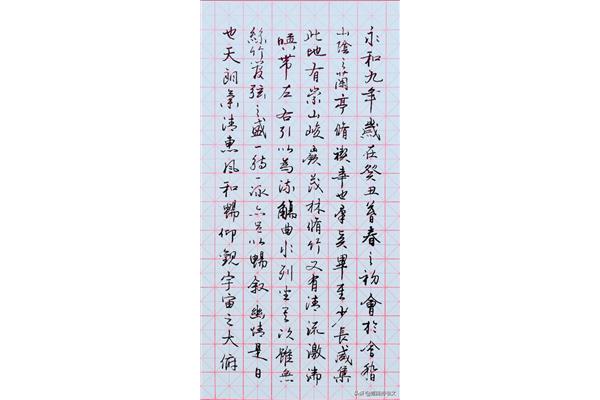 永和九年歲在癸丑暮春之初會於會稽
山陰之蘭亭脩禊事也羣賢畢至少長咸集
此地有崇山峻嶺茂林脩竹又有清流激湍
暎帶左右引以為流觴曲水列坐其次雖無
絲竹管弦之盛一觴一詠亦足以暢敘幽情是日
也天朗氣清惠風和暢仰觀宇宙之大俯